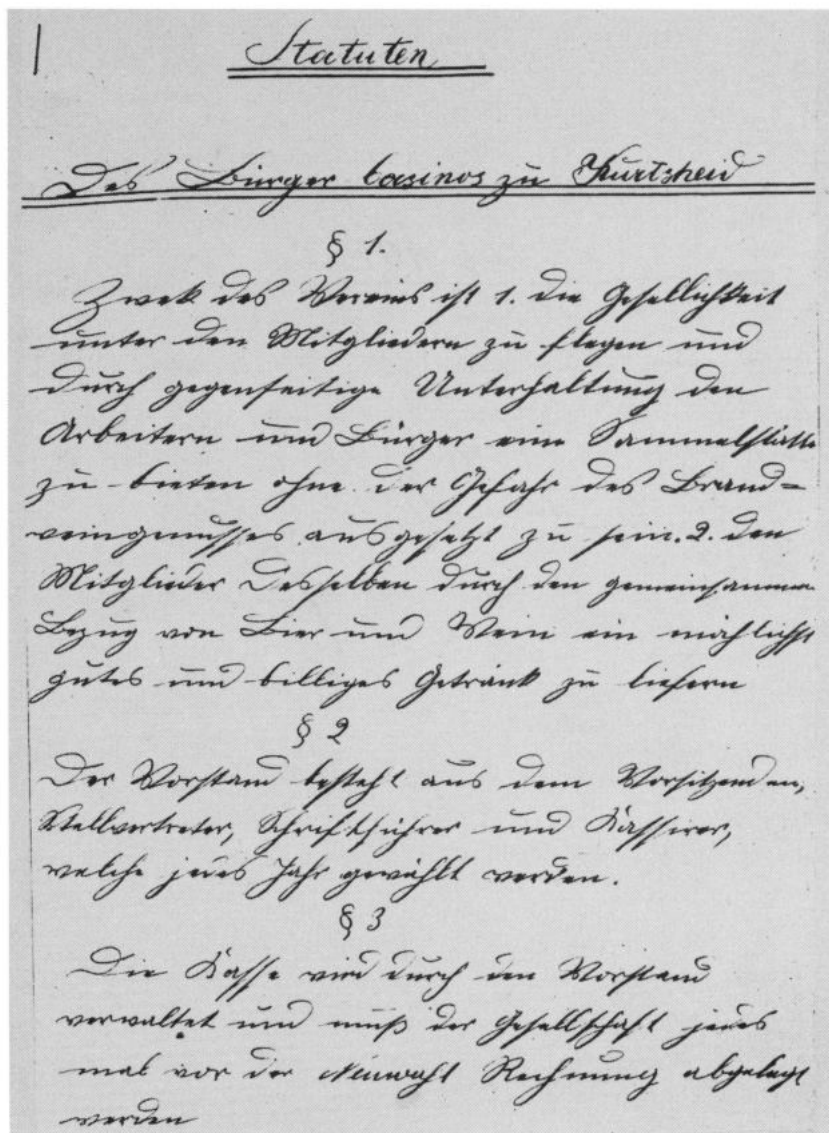 Statuten
Des Bürger Casinos zu Kurtsheid
§ 1.
Zwek des Vereins ist 1. die Gesellichkeit
unter den Mitgliedern zu flegen und
durch gegenseitige Unterhaltung den
Arbeitern und Bürger eine Sammelstätte
zu bieten ohne der Gefahr des Brand=
weingenusses ausgesetzt zu sein. 2. den
Mitglieder desselben durch den gemeinsamen
Bezug von Bier und Wein ein möhlichst
gutes und billiges Getränk zu liefern
§ 2
Der Vorstand besteht aus dem Vorsitzenden,
Stellvertreter, Schriftführer und Kassirer,
welche jedes Jahr gewählt werden.
§ 3
Die Kasse wird durch den Vorstand
verwaltet und muß der Gesellschaft jedes
mal vor der Neuwahl Rechnung abgelegt
werden